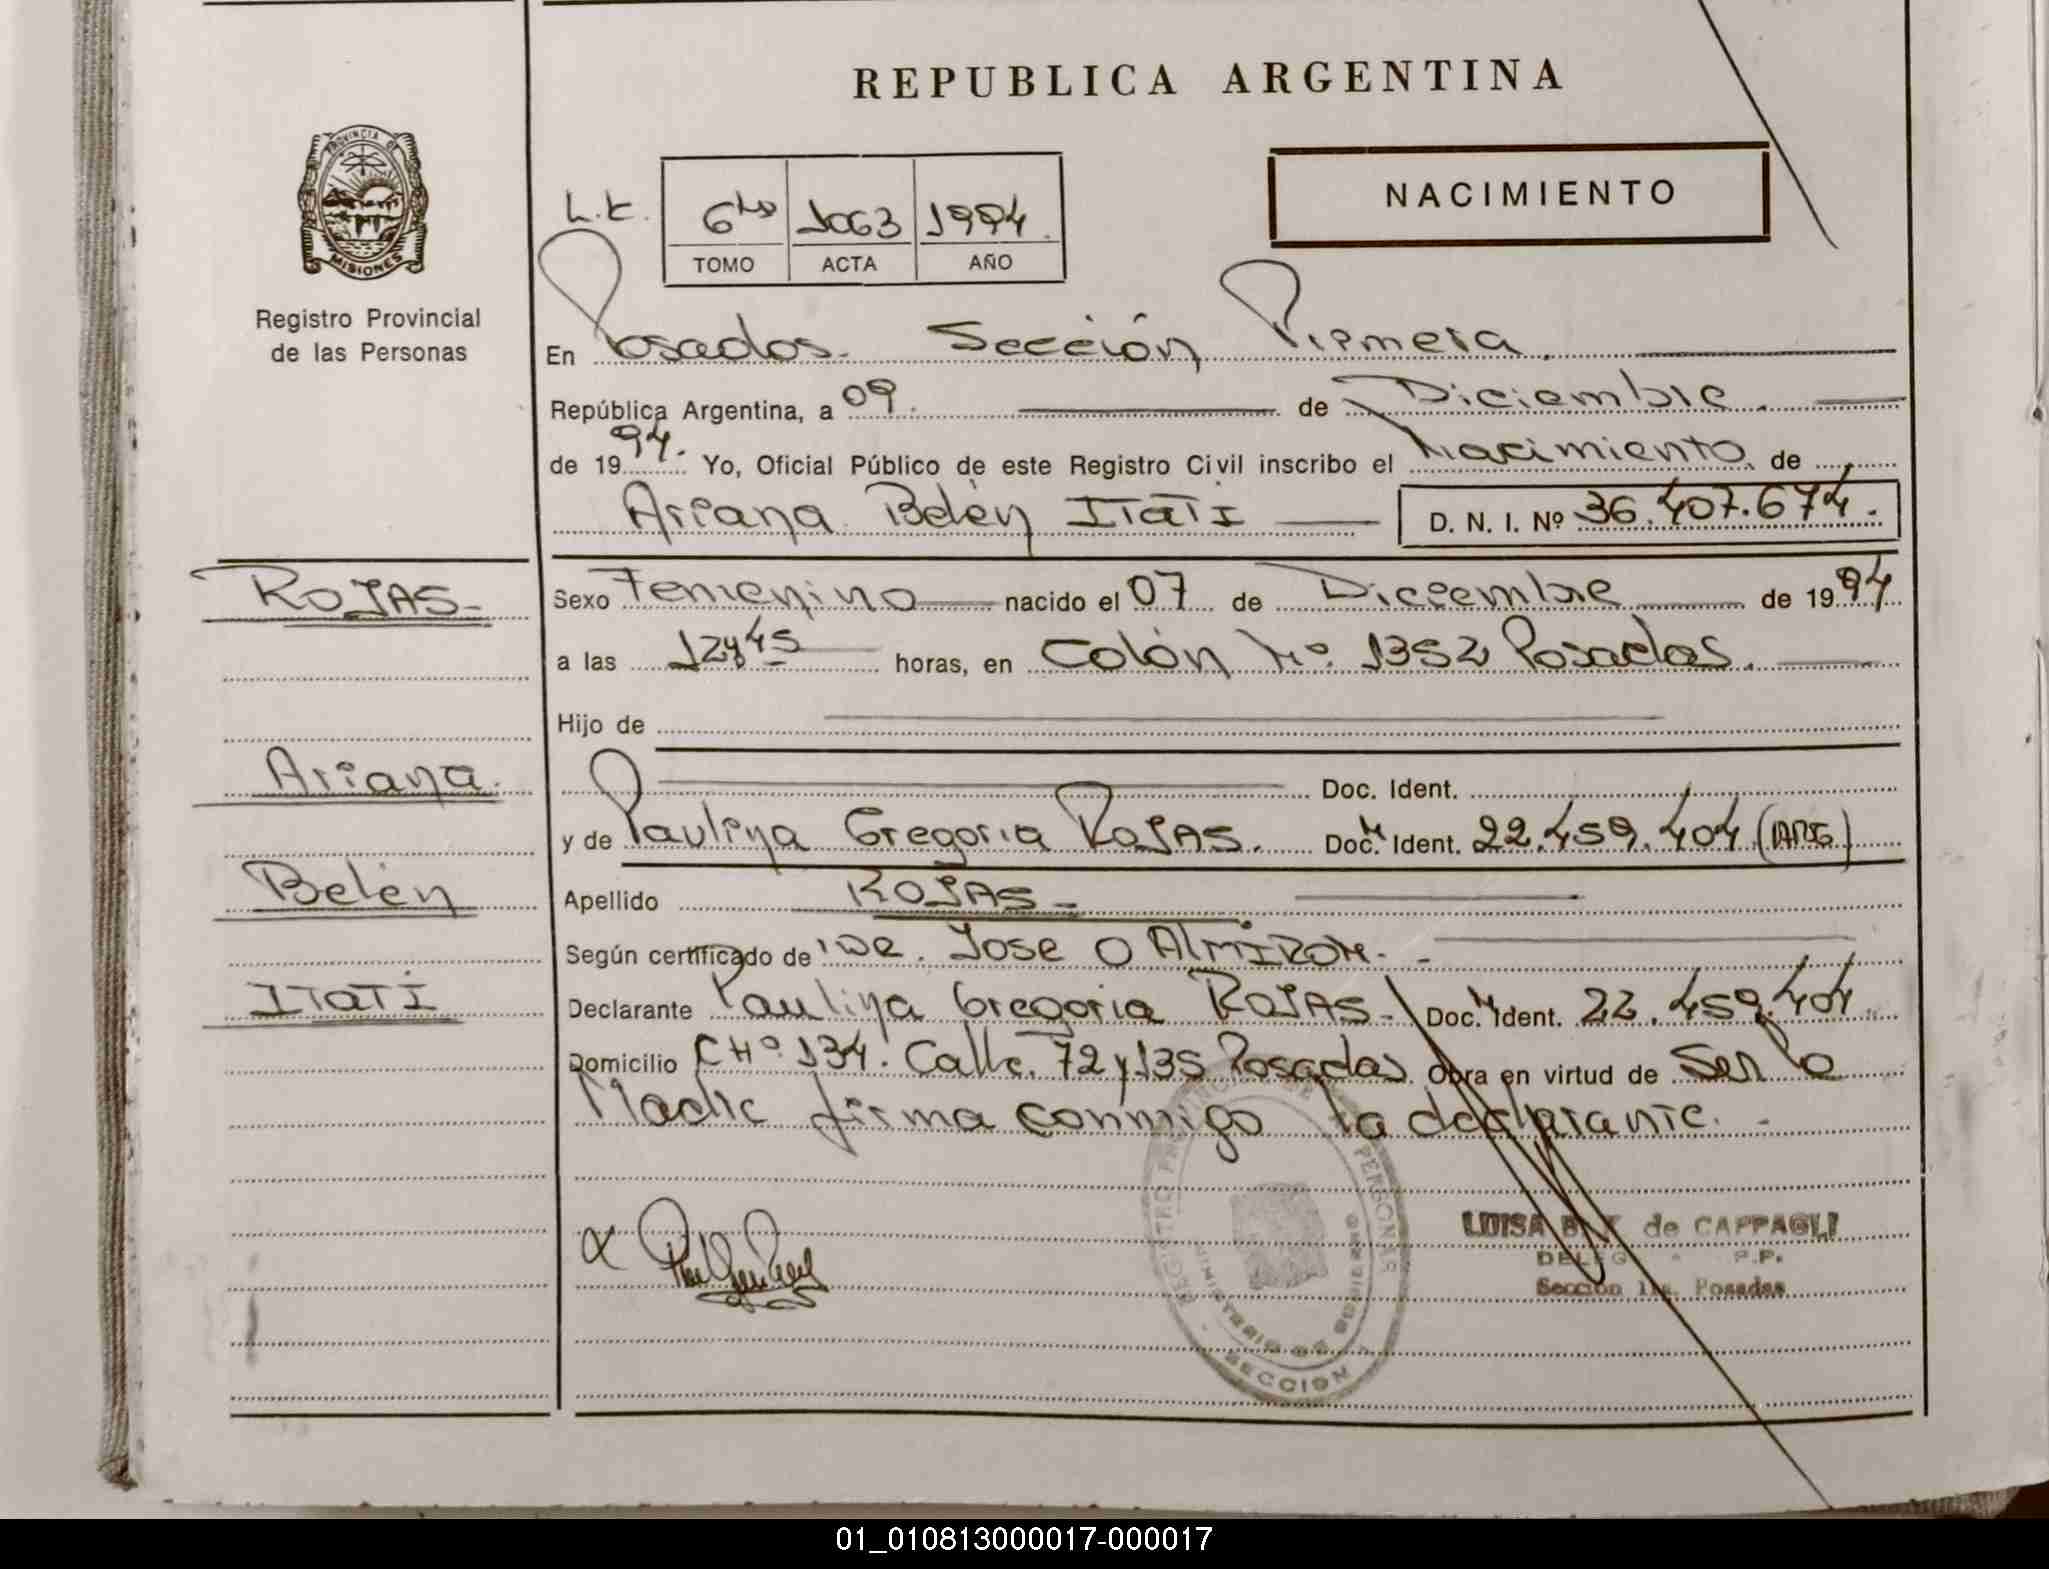 REPUBLICA ARGENTINA
PROVINCIA DE
MISIONES
Registro Provincial
de las Personas
NACIMIENTO
6to 1063 1994
TOMO ACTA AÑO
En Posadas. Sección Primera.
República Argentina, a 09. de Diciembre.
de 1994. Yo, Oficial Público de este Registro Civil inscribo el Nacimiento de
Ariana Belén Itatí D. N. I. Nº 36.407.674.
ROJAS-
Sexo Femenino nacido el 07 de Diciembre de 1994
a las 12y45 horas, en Colón Nº. 1352 Posadas.
Hijo de
Ariana.
Doc. Ident.
y de Paulina Gregoria ROJAS. Doc. Ident. 22.459.404 (ARG)
Belén
Apellido ROJAS-
Según certificado de Dr. Jose O ALMIRON.-
Itatí
Declarante Paulina Gregoria ROJAS- Doc. Ident. 22.459.404
Domicilio CHº 134. Calle. 72 y 135 Posadas. Obra en virtud de Ser la
Madre firma conmigo la declarante.-
LUISA de CAPPAGLI
Sección 1ra. Posadas
SECCION 1
01_010813000017-000017